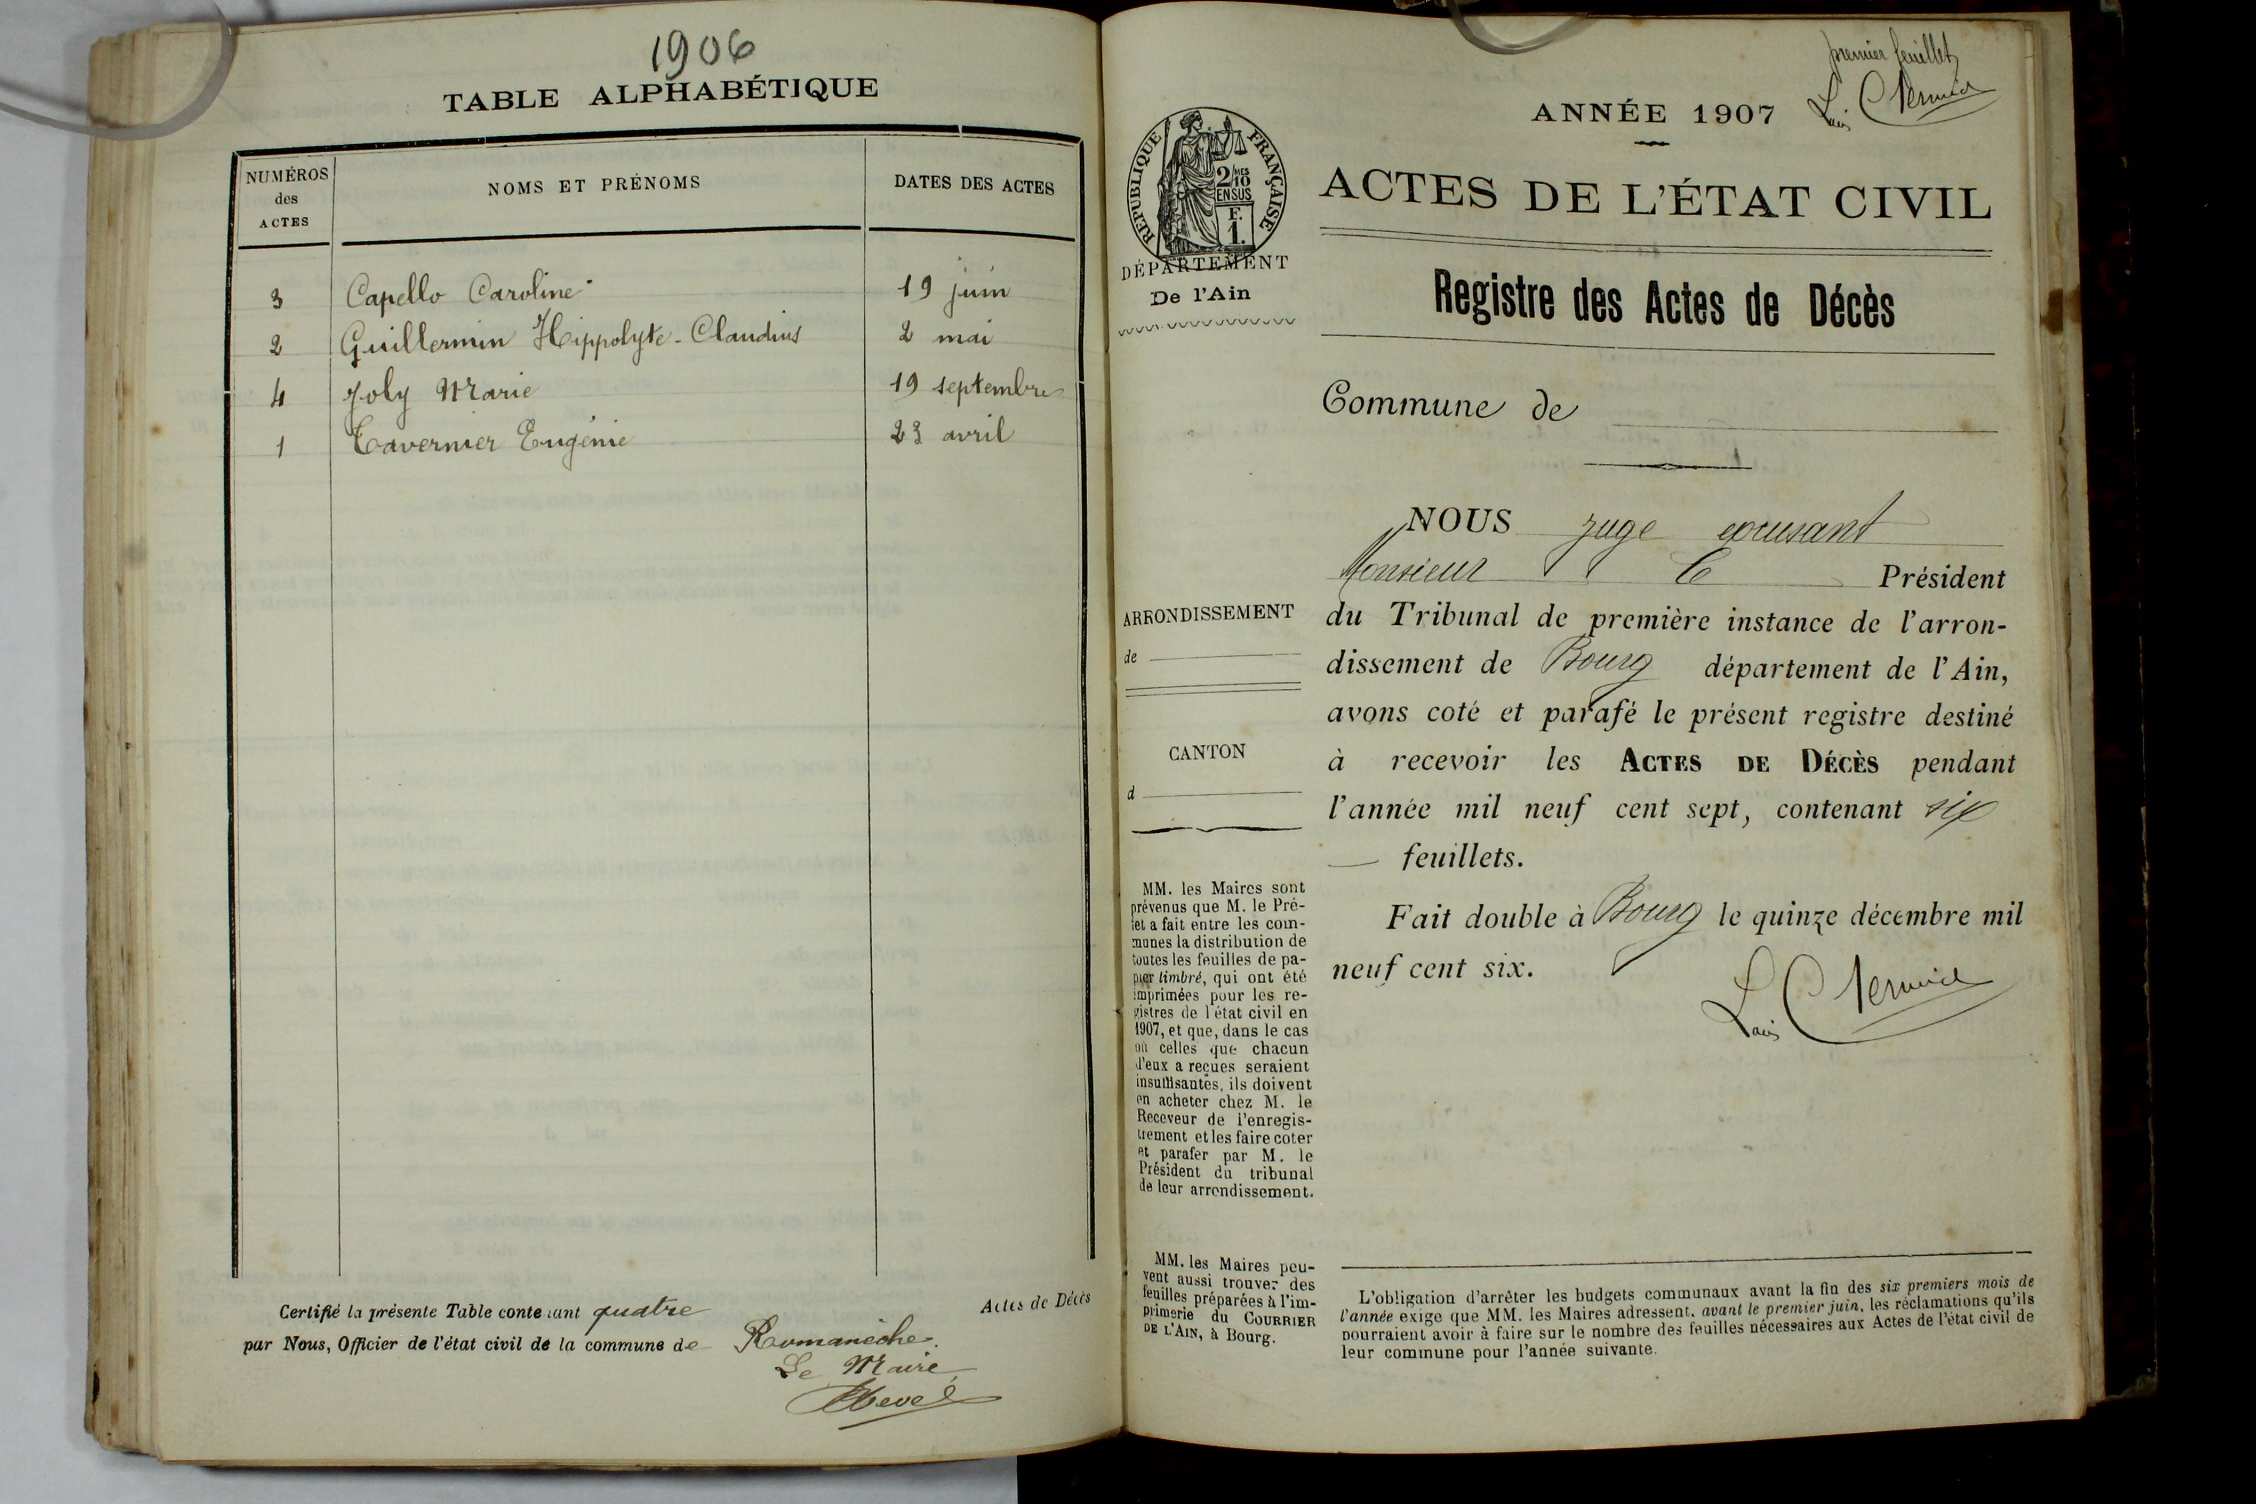 1906
TABLE ALPHABÉTIQUE
NUMÉROS
des
ACTES
NOMS ET PRÉNOMS
DATES DES ACTES
3 Capello Caroline 19 juin
2 Guillermin Hippolyte-Claudius 2 mai
4 Joly Marie 19 septembre
1 Tavernier Eugénie 23 avril
Certifié la présente Table contenant quatre
Actes de Décès
par Nous, Officier de l'état civil de la commune de Romanèche.
Le Maire
premier feuillet
ANNÉE 1907
RÉPUBLIQUE FRANÇAISE
2/10MES
EN SUS
F.
1.
DÉPARTEMENT
De l'Ain
ACTES DE L'ÉTAT CIVIL
Registre des Actes de Décès
Commune de
NOUS juge excusant
Monsieur le Président
ARRONDISSEMENT
de
du Tribunal de première instance de l'arron-
dissement de Bourg département de l'Ain,
avons coté et parafé le présent registre destiné
CANTON
d
à recevoir les ACTES DE DÉCÈS pendant
l'année mil neuf cent sept, contenant six
feuillets.
Fait double à Bourg le quinze décembre mil
neuf cent six.
MM. les Maires sont
prévenus que M. le Pré-
fet a fait entre les com-
munes la distribution de
toutes les feuilles de pa-
pier timbré, qui ont été
imprimées pour les re-
gistres de l'état civil en
1907, et que, dans le cas
où celles que chacun
d'eux a reçues seraient
insuffisantes, ils doivent
en acheter chez M. le
Receveur de l'enregis-
trement et les faire coter
et parafer par M. le
Président du tribunal
de leur arrondissement.
MM. les Maires peu-
vent aussi trouver des
feuilles préparées à l'im-
primerie du COURRIER
DE L'AIN, à Bourg.
L'obligation d'arrêter les budgets communaux avant la fin des six premiers mois de
l'année exige que MM. les Maires adressent, avant le premier juin, les réclamations qu'ils
pourraient avoir à faire sur le nombre des feuilles nécessaires aux Actes de l'état civil de
leur commune pour l'année suivante.